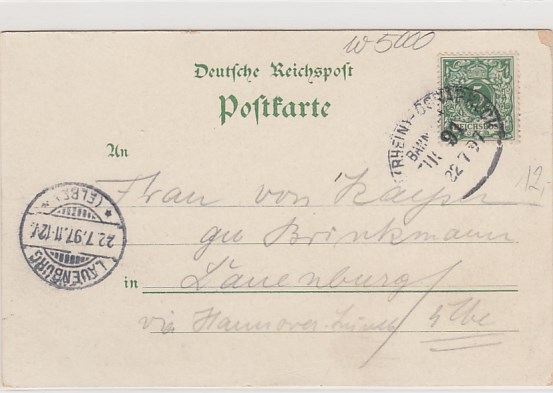 w 5000
Deutsche Reichspost
Postkarte
An
Frau von Kayser
Brinkmann
in Lauenburg
via Hannover Elbe
12,-
(RHEIN)-OSNABRÜCK
BAHN
22 7 97
LAUENBURG
22.7.97.11-12V.
* (ELBE) *